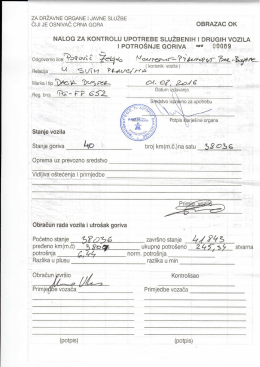 ZA DRŽAVNE ORGANE I JAVNE SLUŽBE
ČIJI JE OSNIVAČ CRNA GORA
OBRAZAC OK
NALOG ZA KONTROLU UPOTREBE SLUŽBENIH I DRUGIH VOZILA
I POTROŠNJE GORIVA 00089
Odgovorno lice Popović Željko
(korisnik vozila)
Relacija U SVIM PRAVCIMA
Marka i tip DACIA DUSTER 01.08.2016
Datum izdavanja
Reg. broj PG-FF 652
Sredstvo ispravno za upotrebu
Potpis ovlaštenog organa
Stanje vozila
Stanje goriva 40 broj km(m.č) na satu 38036
Oprema uz prevozno sredstvo
Vidljiva oštećenja i primjedbe
Obračun rada vozila i utrošak goriva
Početno stanje 38036 završno stanje 41843
pređeno km(m.č) 3807 ukupno potrošeno 245,34 stvarna
potrošnja 6,44 norm. potrošnja
Razlika u plusu Razlika u minusu
Obračun izvršio Kontrolisao
Primjedbe vozača Primjedbe vozača
(potpis) (potpis)